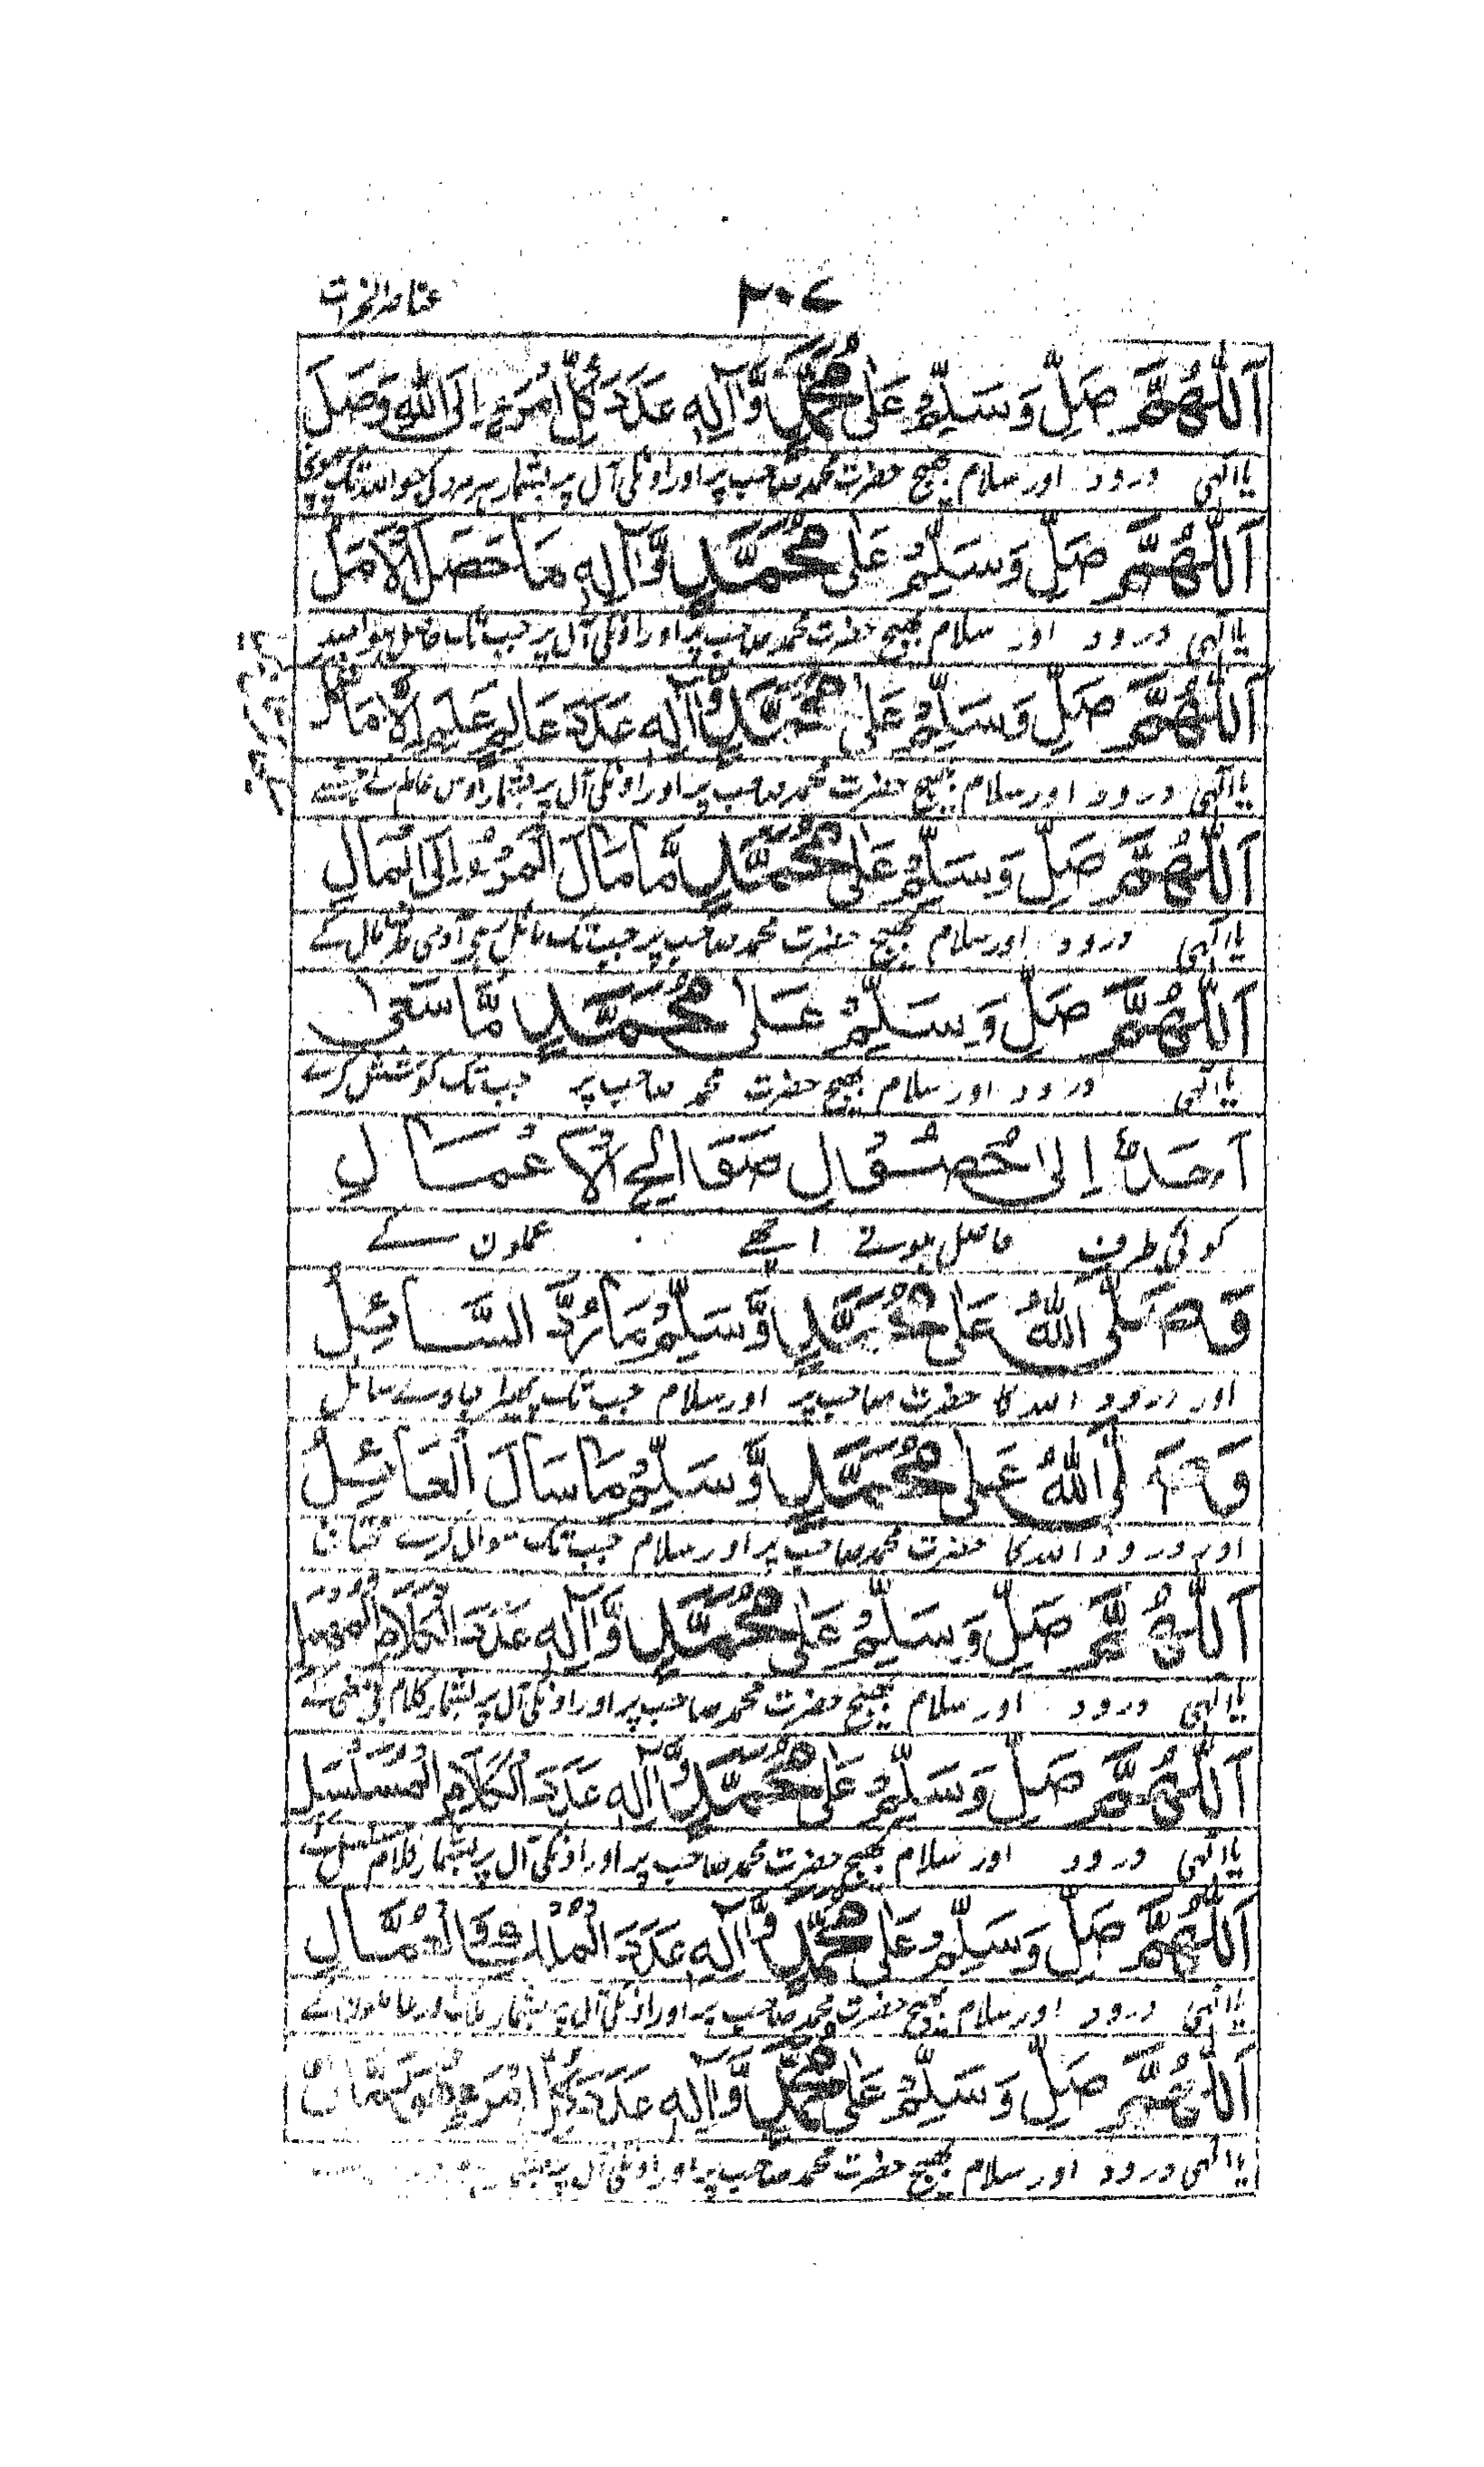 ۲۰۷
اَللّٰهُمَّ صَلِّ وَسَلِّمْ عَلٰى مُحَمَّدٍ وَّاٰلِهٖ عَدَدَ كُلِّ امْرَءٍ اِلَى اللهِ وَصَلَ
یا الٰہی درود اور سلام بھیج حضرت محمد صاحب پر اور اونکی آل پر بشمار ہر مرد کی جو اللہ تک
اَللّٰهُمَّ صَلِّ وَسَلِّمْ عَلٰى مُحَمَّدٍ وَّاٰلِهٖ مَا حَصَلَ الْاَمَلُ
یا الٰہی درود اور سلام بھیج حضرت محمد صاحب پر اور اونکی آل پر جب تک حاصل ہو امید
اَللّٰهُمَّ صَلِّ وَسَلِّمْ عَلٰى مُحَمَّدٍ وَّاٰلِهٖ عَدَدَ عَالِمٍ عَلِيْمٍ
یا الٰہی درود اور سلام بھیج حضرت محمد صاحب پر اور اونکی آل پر بشمار اوس عالم کے
اَللّٰهُمَّ صَلِّ وَسَلِّمْ عَلٰى مُحَمَّدٍ مَّا مَالَ الْمَرْءُ اِلَى الْمَالِ
یا الٰہی درود اور سلام بھیج حضرت محمد صاحب پر جب تک مائل رہے آدمی طرف مال کے
اَللّٰهُمَّ صَلِّ وَسَلِّمْ عَلٰى مُحَمَّدٍ مَّا سَعٰى
یا الٰہی درود اور سلام بھیج حضرت محمد صاحب پر جب تک کوشش کرے
اَحَدٌ اِلٰى حُصُوْلِ صَوَالِحِ الْاَعْمَالِ
کوئی طرف حاصل ہونے اچھے عملون کے
وَصَلَّى اللهُ عَلٰى مُحَمَّدٍ وَّسَلِّمْ مَا رُدَّ السَّائِلُ
اور درود اللہ کا حضرت صاحب پر اور سلام جب تک پھیرا جاوے سائل
وَصَلَّى اللهُ عَلٰى مُحَمَّدٍ وَّسَلِّمْ مَا سَاَلَ الْعَائِلُ
اور درود اللہ کا حضرت محمد صاحب پر اور سلام جب تک سوال کرے
اَللّٰهُمَّ صَلِّ وَسَلِّمْ عَلٰى مُحَمَّدٍ وَّاٰلِهٖ عَدَدَ الْكَلَامِ
یا الٰہی درود اور سلام بھیج حضرت محمد صاحب پر اور اونکی آل پر بشمار کلام
اَللّٰهُمَّ صَلِّ وَسَلِّمْ عَلٰى مُحَمَّدٍ وَّاٰلِهٖ عَدَدَ الْكَلَامِ الْمُسَلْسَلِ
یا الٰہی درود اور سلام بھیج حضرت محمد صاحب پر اور اونکی آل پر بشمار کلام مسلسل کے
اَللّٰهُمَّ صَلِّ وَسَلِّمْ عَلٰى مُحَمَّدٍ وَّاٰلِهٖ عَدَدَ الْمُلْكِ وَالْعُمَّالِ
یا الٰہی درود اور سلام بھیج حضرت محمد صاحب پر اور اونکی آل پر بشمار ملک اور عاملون کے
اَللّٰهُمَّ صَلِّ وَسَلِّمْ عَلٰى مُحَمَّدٍ وَّاٰلِهٖ عَدَدَ كُلِّ امْرَءٍ
یا الٰہی درود اور سلام بھیج حضرت محمد صاحب پر اور اونکی آل پر بشمار